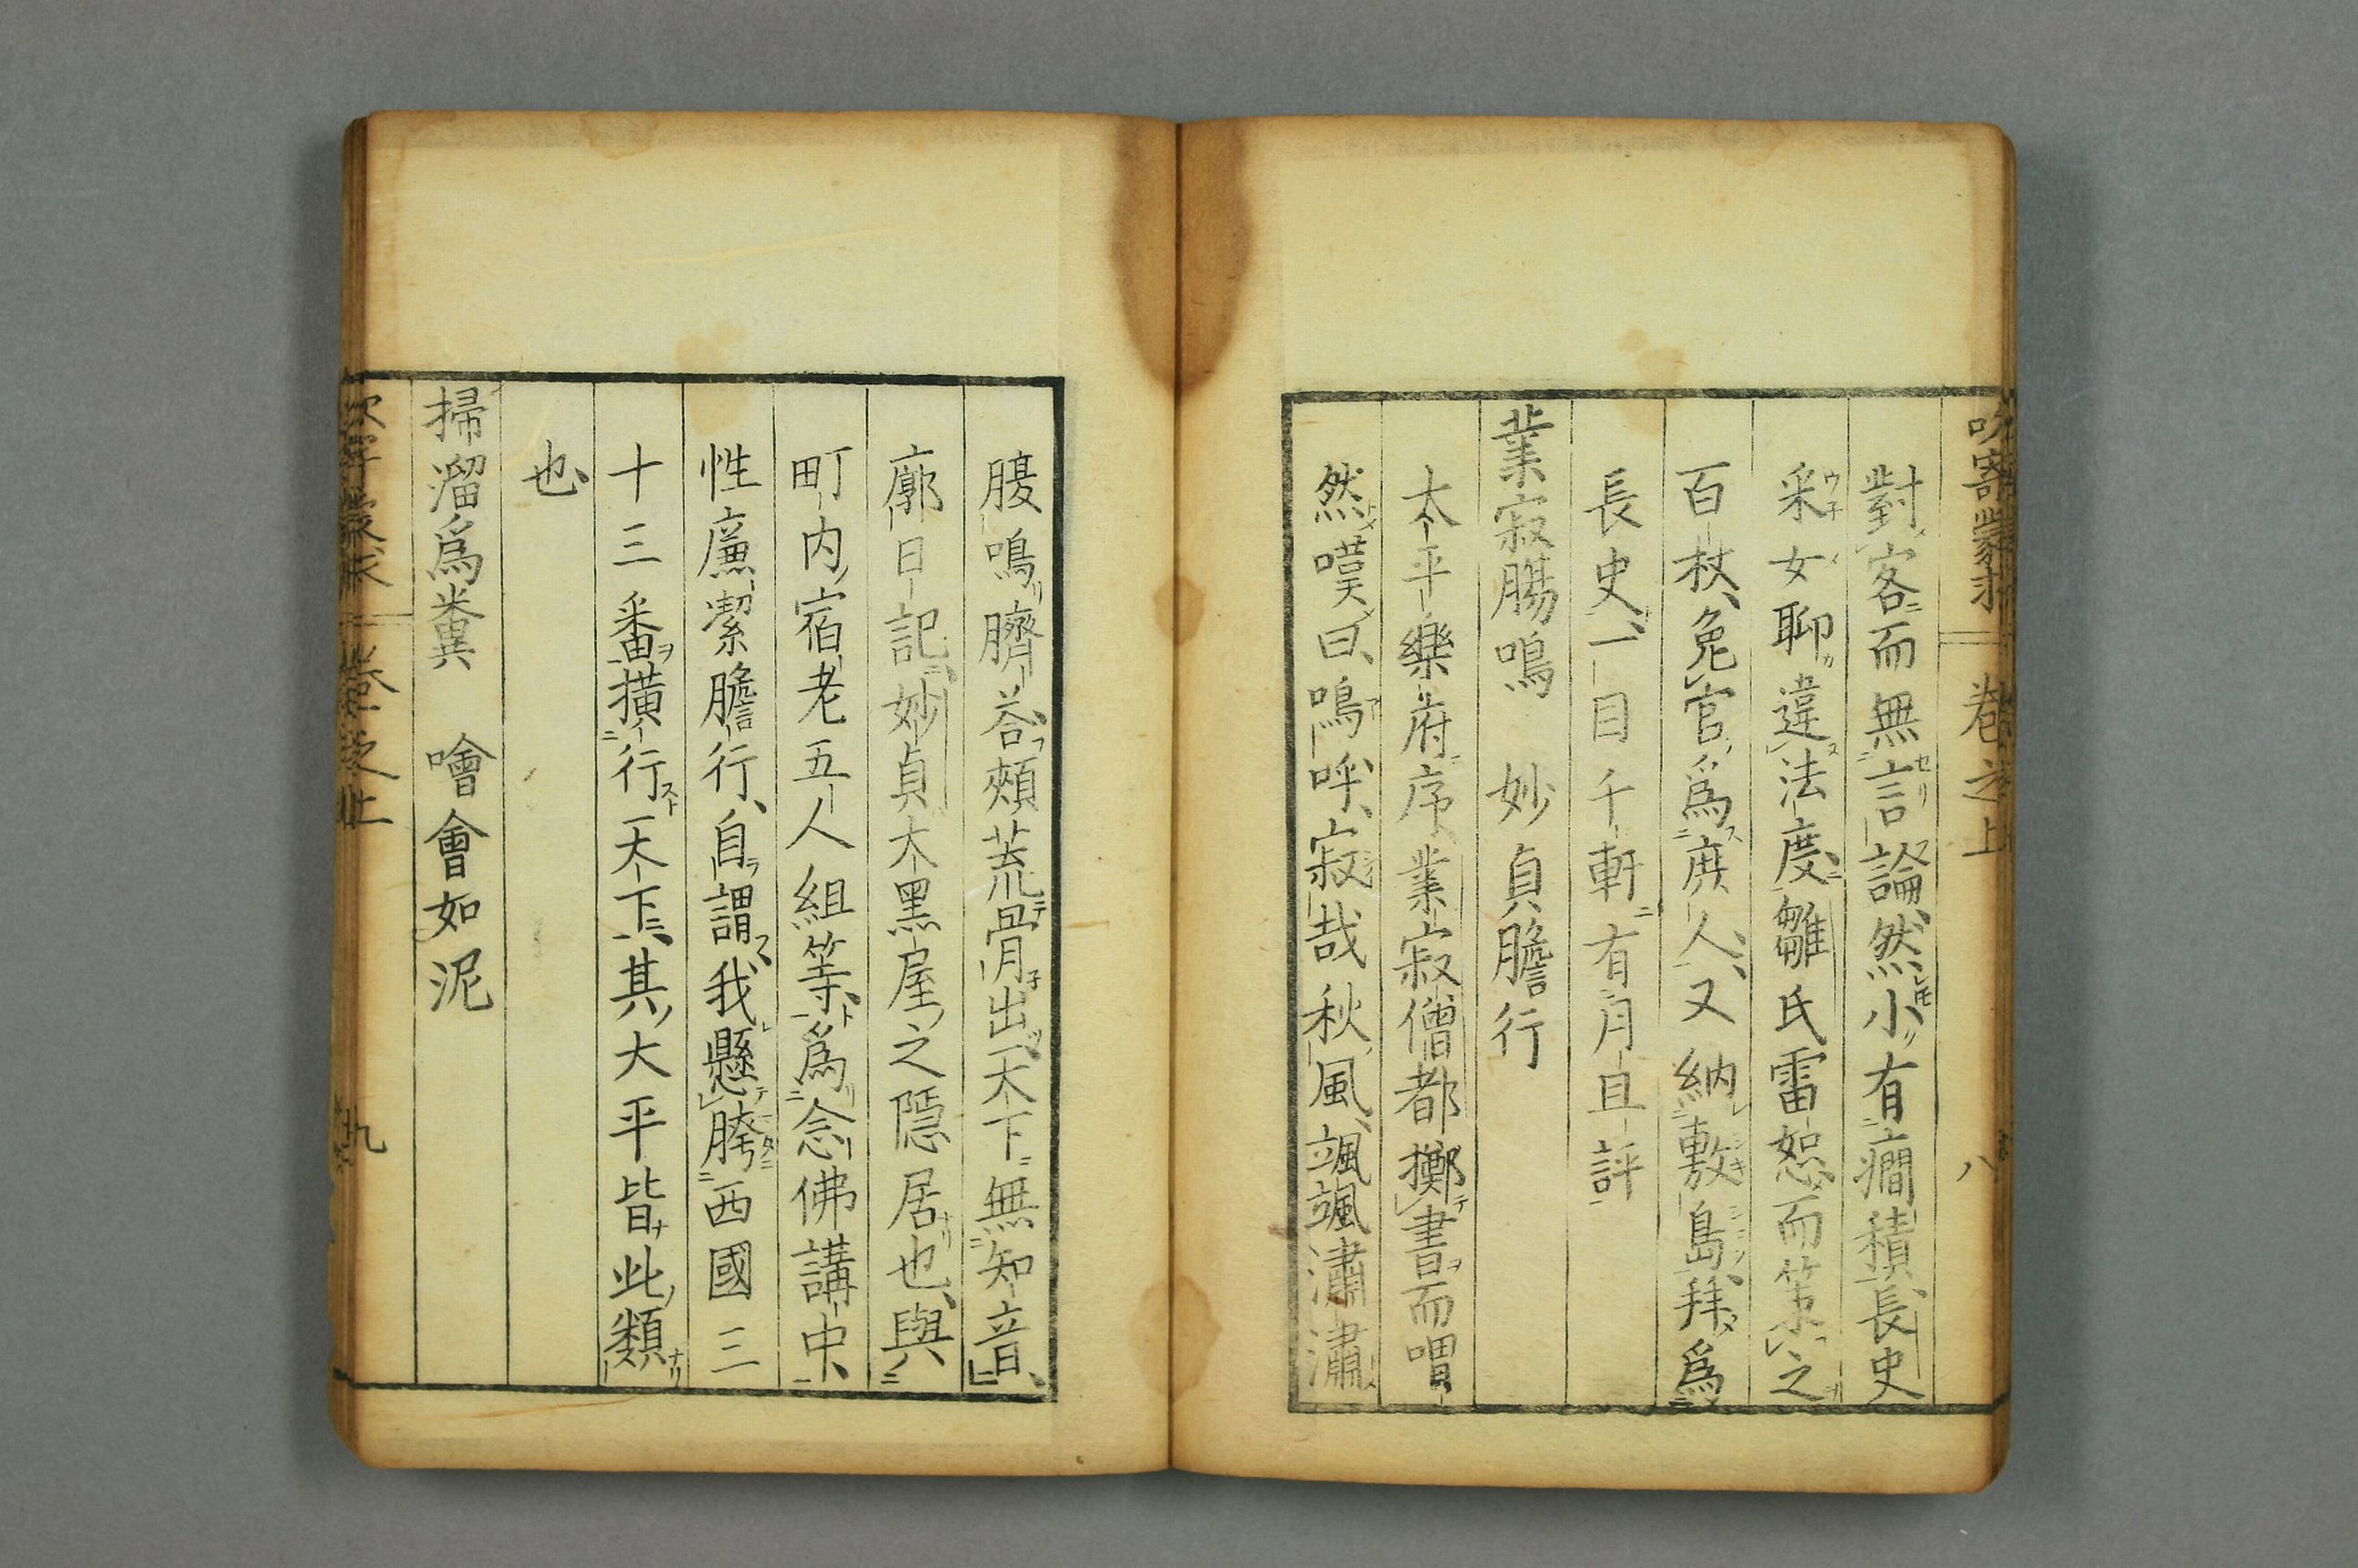 對客而無言論然小有癇積長史
采女聊違法度雛氏雷恕而笞之
百杖免官為庶人又納敷島拜爲
長史一目千軒有月旦評
業寂腸鳴　妙貞膽行
太平樂府序業寂僧都擲書而喟
然嘆曰嗚呼寂哉秋風颯颯瀟瀟
腹鳴臍荅頰荒骨出天下無知音
廓日記妙貞大黑屋之隱居也與
町内宿老五人組等爲念佛講中
性廉潔膽行自謂我懸胯西國三
十三番横行天下其大平皆此類
也
掃溜爲糞　噲會如泥
卷之上
九